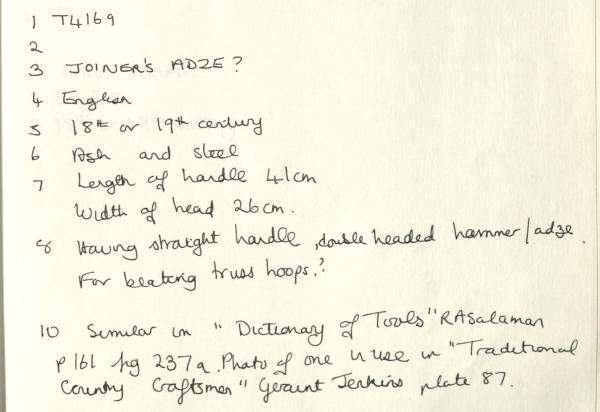 1 T4169
2
3 JOINER'S ADZE?
4 English
5 18th or 19th century
6 Ash and steel
7 Length of handle 41cm
Width of head 26cm.
8 Having straight handle, double headed hammer/adze.
For beating truss hoops.?
10 Similar in "Dictionary of Tools" RASalaman
P161 fig 237a. Photo of one in use in "Traditional
Country Craftsmen" Geraint Jenkins plate 87.